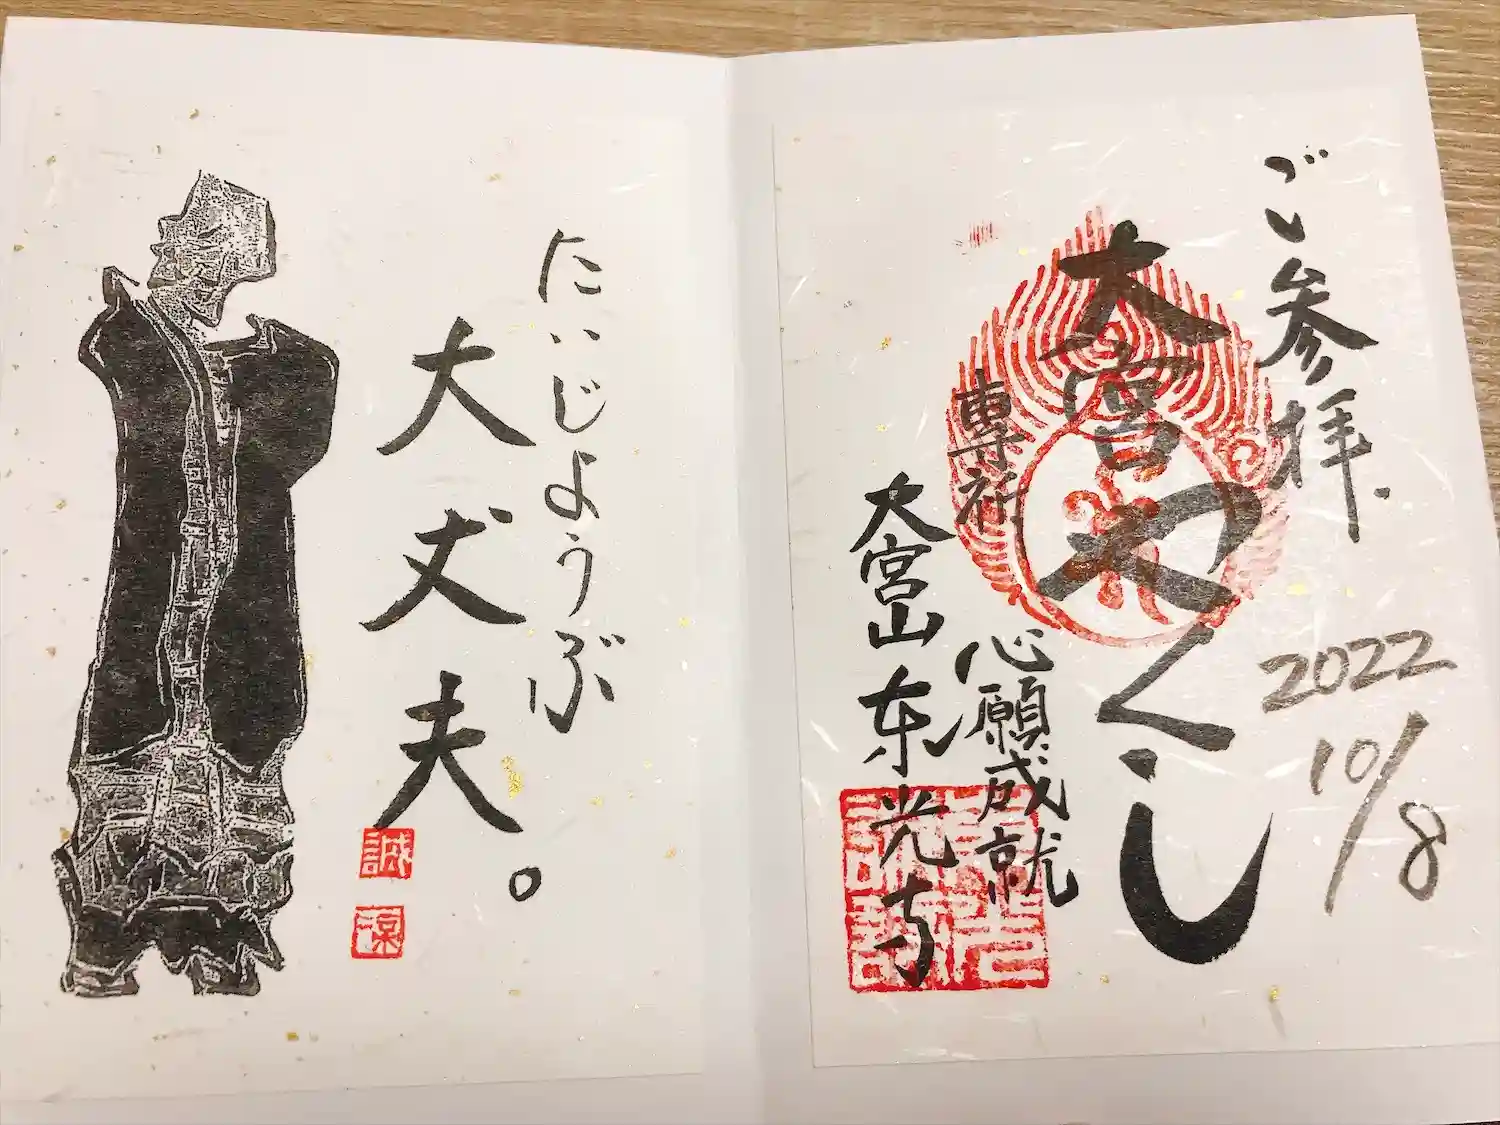 ご参拝.
2022
10/8
大宮やくし
専祈
心願成就
大宮山東光寺
だいじょうぶ
大丈夫。
誠